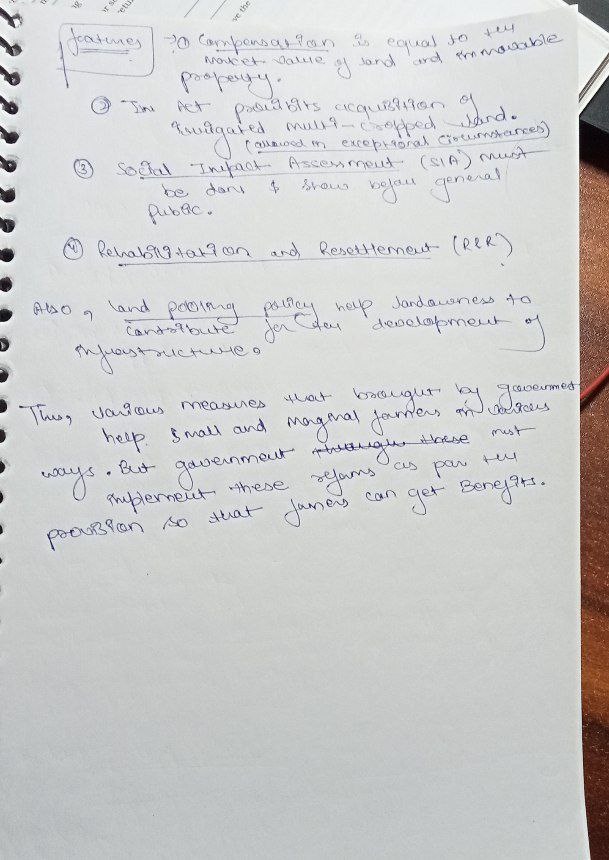 ve the
features → ① Compensation is equal to the
market value of land and immovable
property.
② The Act prohibits acquisition of
irrigated multi-cropped land.
(allowed in exceptional circumstances)
③ Social Impact Assessment (SIA) must
be done & shown before general
public.
④ Rehabilitation and Resettlement (R&R)
Also, land pooling policy help landowners to
contribute for the development of
infrastructure.
Thus, various measures that brought by government
help small and marginal farmers in various
ways. But government through these must
implement these reforms as par the
provision so that farmers can get Benefits.